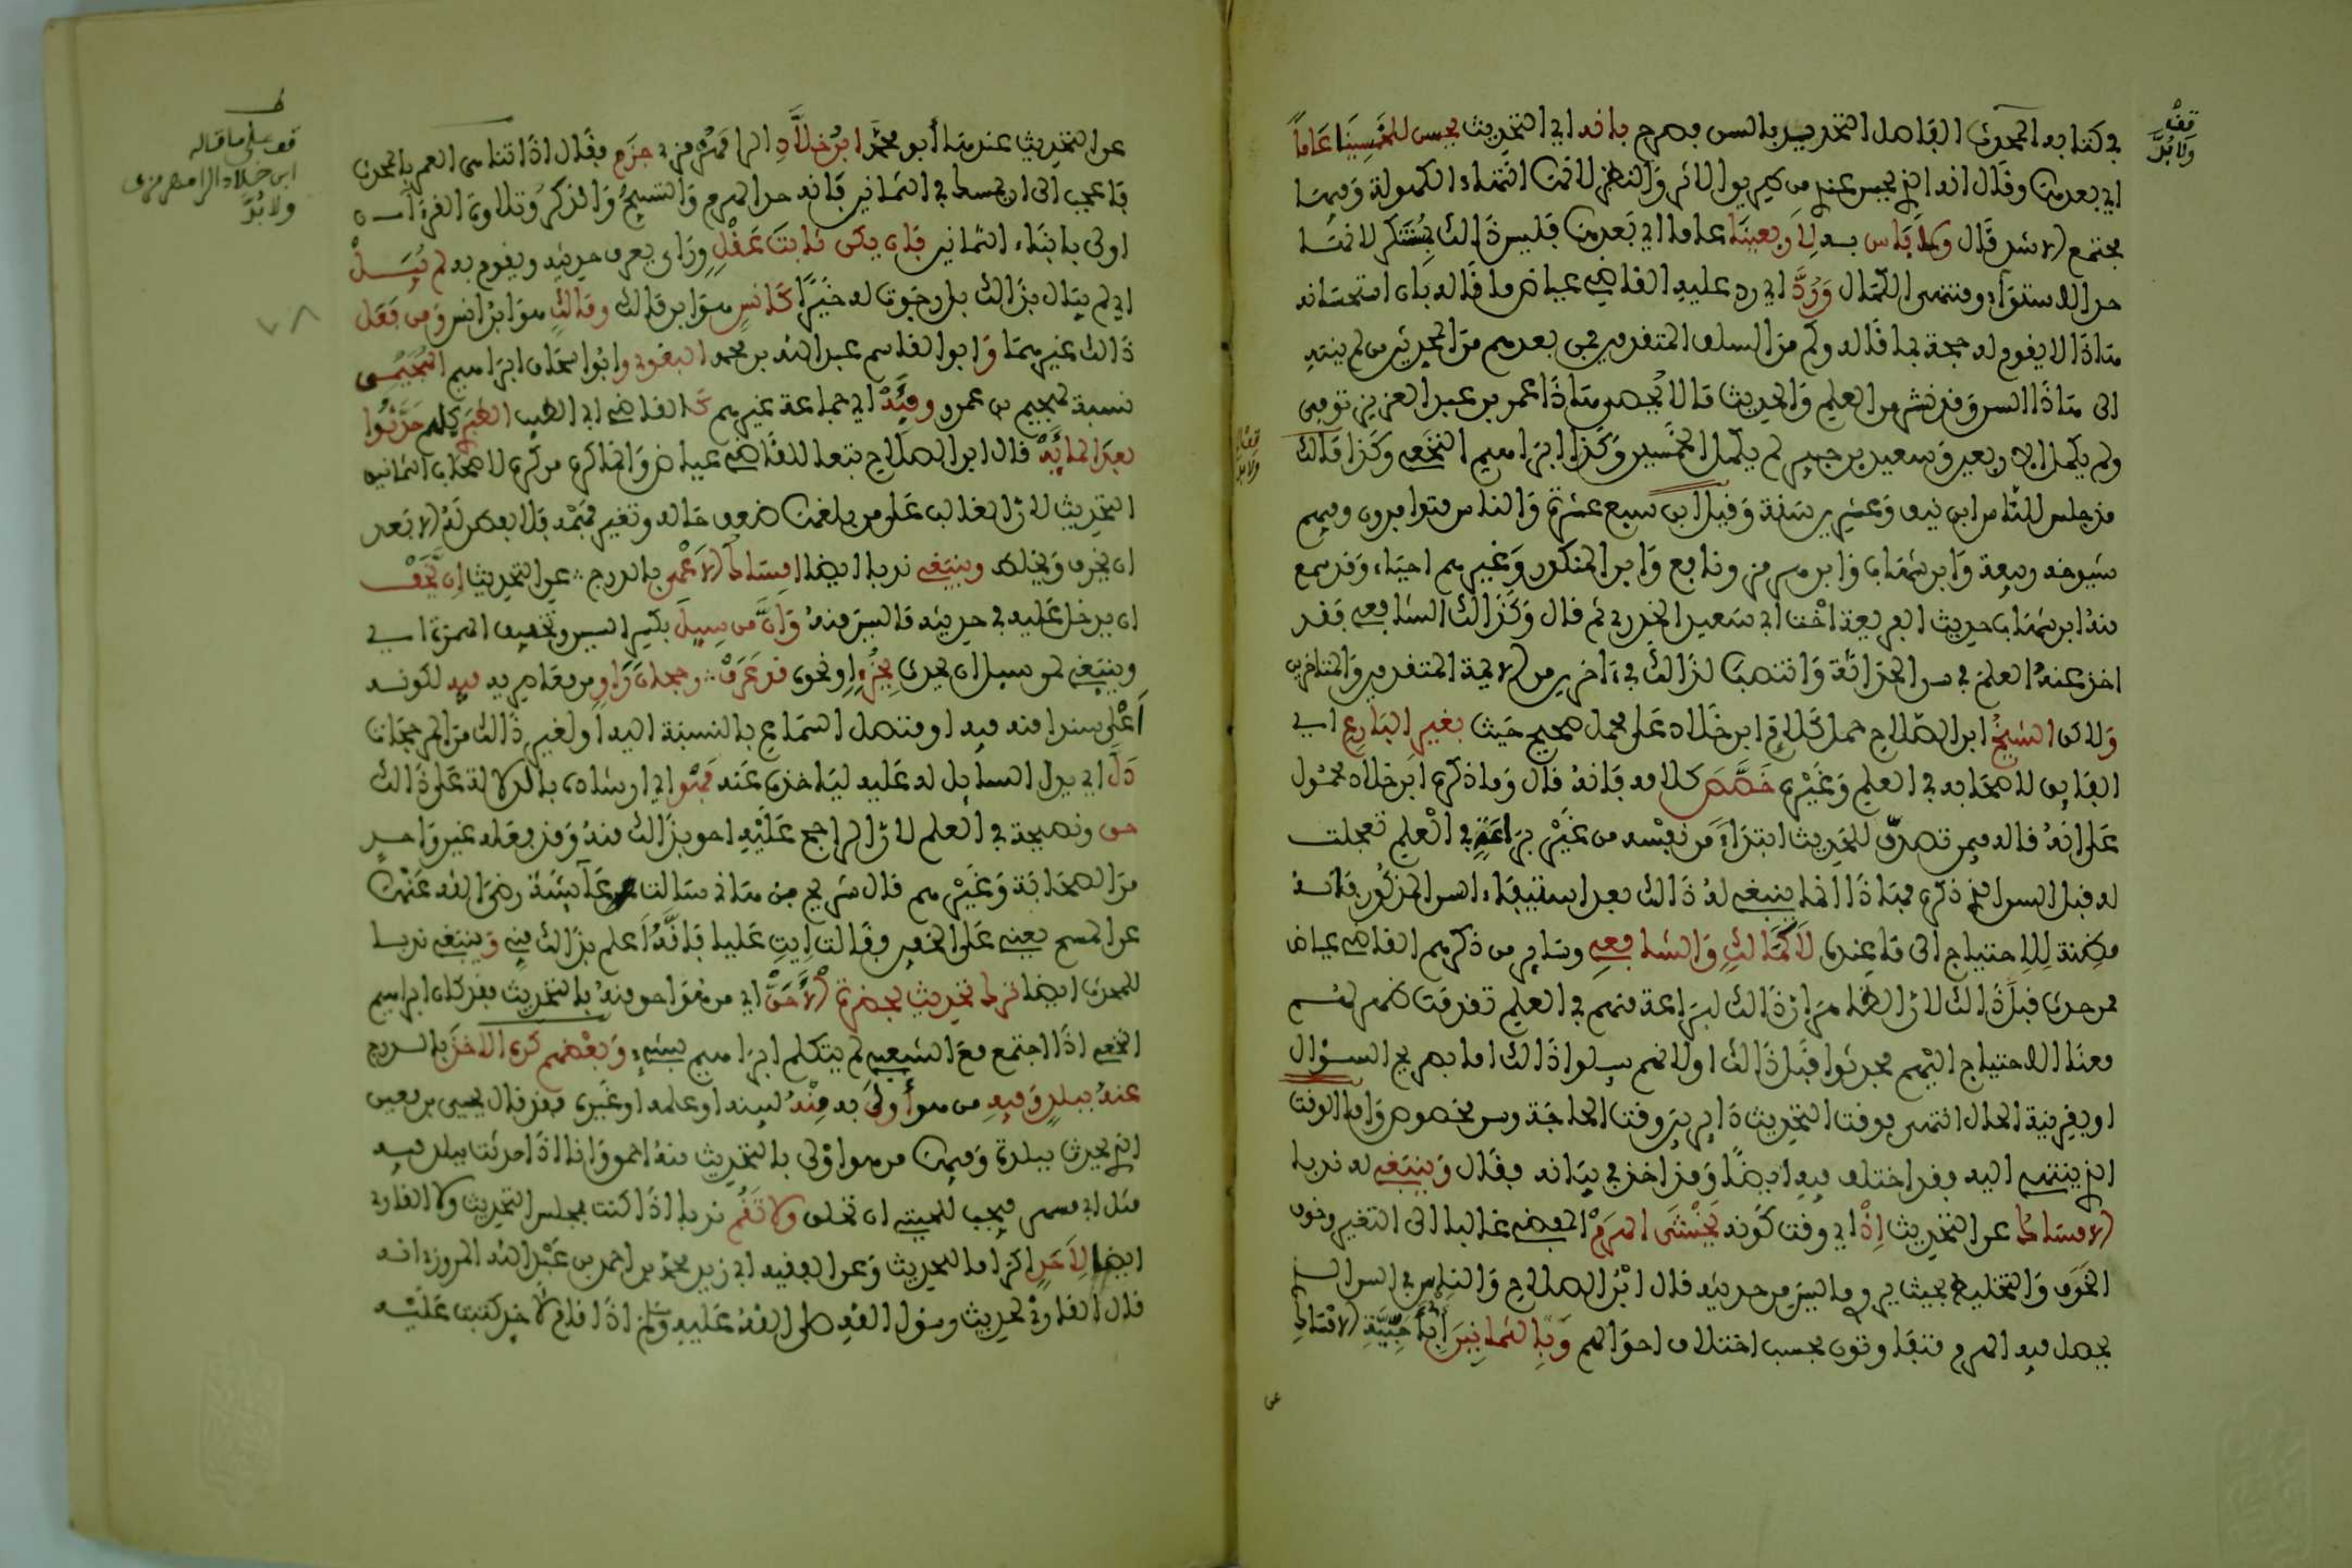 في كتابه المحدث الفاصل التحديد بالسن بصرح بانه اي التحديث يحسن للخمسينا عاما
اي بعدها وقال انه الذي يحسن عندي من طريق الاثر والنظر لانها انتهاء الكهولة وفيها
مجتمع الاشد قال ولا باس به لاربعينا عاما اي بعدها فليس ذالك بمستنكر لانها
حد الاستواء ومنتهى الكمال ورد اي رد عليه القاضي عياض ما قاله بان استحسانه
هاذا لا يقوم له حجة بما قاله وكم من السلف المتقدمين فمن بعدهم من المحدثين من لم ينته
الى هاذا السن وقد نشر من العلم والحديث ما لا يحصى هاذا عمر بن عبد العزيز توفي
ولم يكمل الاربعين وسعيد بن جبير لم يكمل الخمسين وكذا ابراهيم النخعي وكذا مالك
قد جلس للناس ابن نيف وعشرين سنة وقيل ابن سبع عشرة والناس متوافرون وفيهم
شيوخه ربيعة وابن شهاب وابن هرمز ونافع وابن المنكدر وغيرهم احياء وقد سمع
منه ابن شهاب حديث الفريعة اخت ابي سعيد الخدري ثم قال وكذالك الشافعي فقد
اخذ عنه العلم في سن الحداثة وانتصب لذالك في ءاخرين من الايمة المتقدمين والمتاخرين
ولاكن الشيخ ابن الصلاح حمل كلام ابن خلاد على محمل صحيح حيث بغير البارع اي
الفايق لاصحابه في العلم وغيره خصص كلامه فانه قال وما ذكره ابن خلاد محمول
على انه قاله فيمن تصدى للتحديث ابتداء من نفسه من غير براعة في العلم تعجلت
له قبل السن الذي ذكره فهاذا انما ينبغي له ذالك بعد استيفاء السن المذكور فانه
مظنة للاحتياج الى ما عنده لا كمالك والشافعي وساير من ذكرهم القاضي عياض
ممن حدث قبل ذالك لان الظاهر ان ذالك لبراعة منهم في العلم تقدمت ظهر لهم
معها الاحتياج اليهم فحدثوا قبل ذالك او لانهم سيلوا ذالك اما بصريح السؤال
او بقرينة الحال انتهى فوقت التحديث داير بين وقت الحاجة وسن مخصوص واما الوقت
الذي ينتهي اليه فقد اختلف فيه ايضا وقد اخذ في بيانه فقال وينبغي له ندبا
الامساك عن التحديث اذ اي وقت كونه يخشى الهرم المفضي غالبا الى التغير وخوف
الخرف والتخليط بحيث يروي ما ليس من حديثه قال ابن الصلاح والناس في السن الذي
يحصل فيه الهرم متفاوتون بحسب اختلاف احوالهم وبالثمانين ابن
قف
ولابد
عن التحديث عندها أبو محمد ابن خلاد الرامهرمزي جزم فقال اذا تناهى العمر بالمحدث
فاعجب الى ان يمسك في الثمانين فانه حد الهرم والتسبيح والذكر وتلاوة القرءان
اولى بابناء الثمانين فان يكن ثابت عقل وراي يعرف حديثه ويقوم به لم يبل
اي لم يبال بذالك بل رجوت له خيرا كانس هو ابن مالك ومالك هو ابن انس ومن فعل
ذالك غيرهما وابو القاسم عبد الله بن محمد البغوي وابو اسحاق ابراهيم الهجيمي
نسبة لهجيم بن عمرو وفئة اي جماعة غيرهم كالقاضي ابي الطيب الطبري كلهم حدثوا
بعد المائة قال ابن الصلاح تبعا للقاضي عياض وانما كره من كره لاصحاب الثمانين
التحديث لان الغالب على من بلغها ضعف حاله وتغير فهمه فلا يفطن له الا بعد
ان يخرف ويخلط وينبغي ندبا ايضا امساك الاعمى بالدرج عن التحديث ان يخف
ان يدخل عليه في حديثه ما ليس منه وان من سيل بكسر السين وتخفيف الهمزة اي
وينبغي لمن سيل ان يحدث بجزء او نحوه قد عرف رجحان راو من معاصريه فيه لكونه
أعلى سندا منه فيه او متصل السماع بالنسبة اليه او لغير ذالك من المرجحات
دل اي يدل السايل له عليه لياخذه عنه فهو اي ارشاده بالدلالة على ذالك
حق ونصيحة في العلم لان الراجح عليه احق بذالك منه وقد فعله غير واحد
من الصحابة وغيرهم قال شريح بن هانئ سالت عآئشة رضي الله عنها
عن المسح يعني على الخفين فقالت ايت عليا فانه أعلم بذالك مني وينبغي ندبا
للمحدث ايضا ترك تحديث بحضرة الأحق اي من هو احق منه بالتحديث فقد كان ابراهيم
النخعي اذا اجتمع مع الشعبي لم يتكلم ابراهيم بشيء وبعضهم كره الاخذ بالدرج
عنه ببلد وفيه من هو أولى به منه لسنه او علمه او غيره فقد قال يحيى بن معين
الذي يحدث ببلدة وفيها من هو اولى بالتحديث منه احمق وانا اذا حدثت ببلد فيه
مثل ابي مسهر فيجب للحيتي ان تحلق ولا تقم ندبا اذا كنت بمجلس التحديث ولا القاري
ايضا لاحد اكراما للحديث وعن الفقيه ابي زيد محمد بن احمد بن عبد الله المروزي انه
قال القارئ لحديث رسول الله صلى الله عليه وسلم اذا قام لاحد كتبت عليه
قف على ما قاله
ابن خلاد الرامهرمزي
ولابد